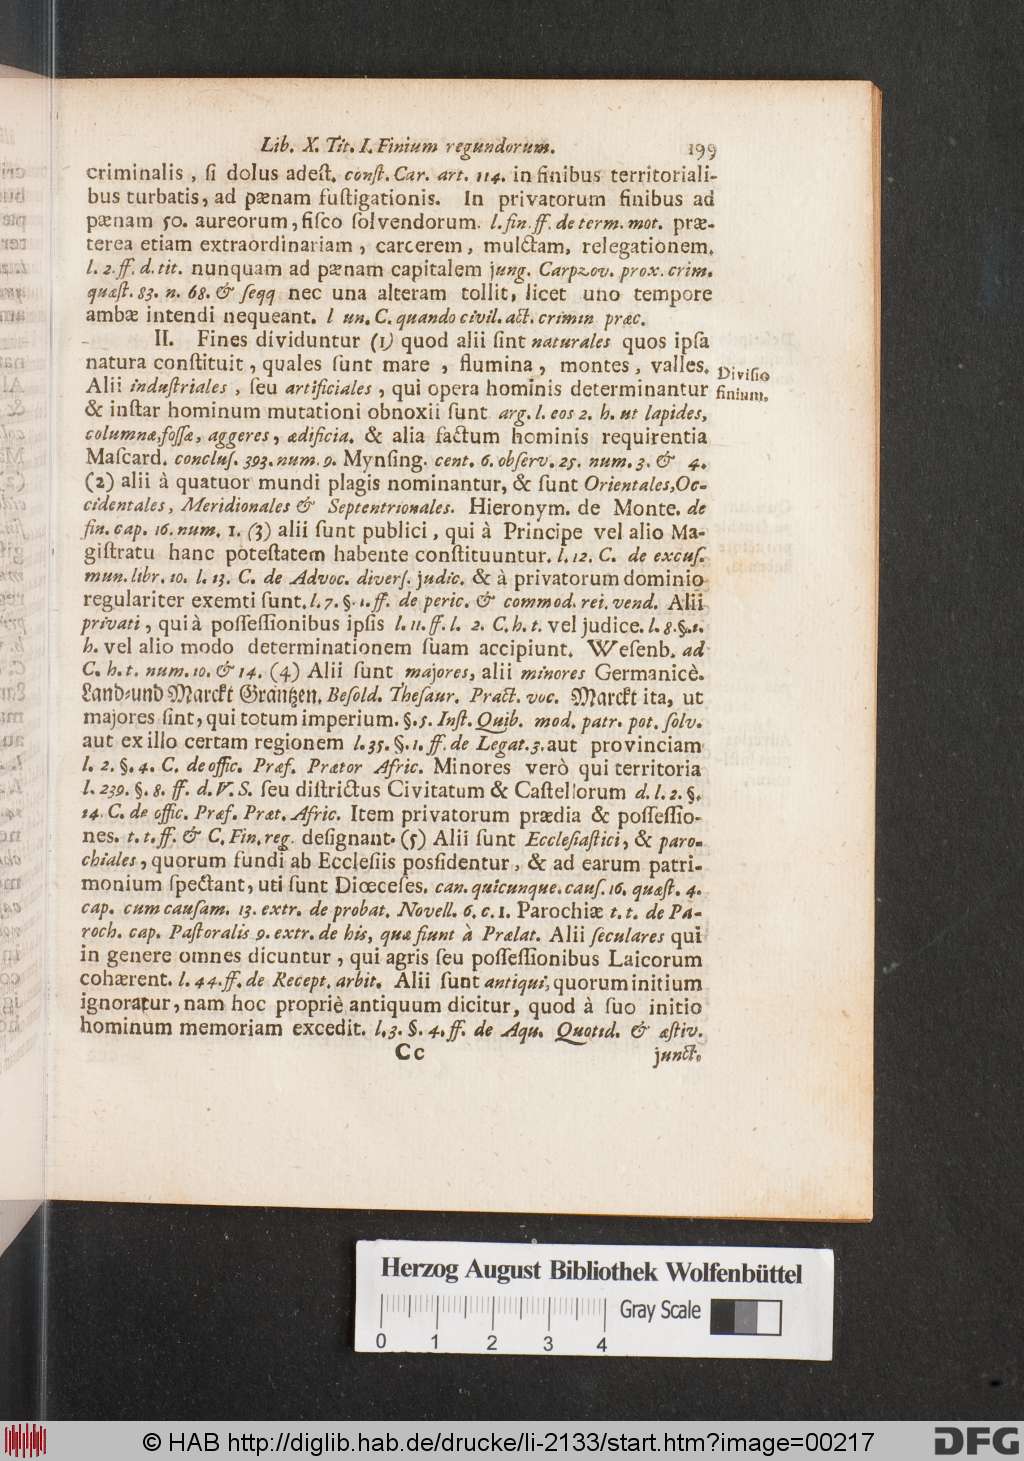 Lib. X. Tit. I. Finium regundorum. 199
criminalis, ſi dolus adeſt. conſt. Car. art. 114. in finibus territoriali-
bus turbatis, ad pænam fuſtigationis. In privatorum finibus ad
pænam 50. aureorum, fiſco ſolvendorum. l. fin. ff. de term. mot. præ-
terea etiam extraordinariam, carcerem, mulctam, relegationem.
l. 2. ff. d. tit. nunquam ad pænam capitalem jung. Carpzov. prox. crim.
quæſt. 83. n. 68. & ſeqq nec una alteram tollit, licet uno tempore
ambæ intendi nequeant. l un. C. quando civil. act. crimin præc.
II. Fines dividuntur (1) quod alii ſint naturales quos ipſa
natura conſtituit, quales ſunt mare, flumina, montes, valles.
Diviſio
finium.
Alii induſtriales, ſeu artificiales, qui opera hominis determinantur
& inſtar hominum mutationi obnoxii ſunt arg. l. eos 2. h. ut lapides,
columnæ, foſſæ, aggeres, ædificia. & alia factum hominis requirentia
Maſcard. concluſ. 393. num. 9. Mynſing. cent. 6. obſerv. 25. num. 3. & 4.
(2) alii à quatuor mundi plagis nominantur, & ſunt Orientales, Oc-
cidentales, Meridionales & Septentrionales. Hieronym. de Monte. de
fin. cap. 16. num. 1. (3) alii ſunt publici, qui à Principe vel alio Ma-
giſtratu hanc poteſtatem habente conſtituuntur. l. 12. C. de excuſ.
mun. libr. 10. l. 13. C. de Advoc. diverſ. judic. & à privatorum dominio
regulariter exemti ſunt. l. 7. §. 1. ff. de peric. & commod. rei. vend. Alii
privati, qui à poſſeſſionibus ipſis l. 11. ff. l. 2. C. h. t. vel judice. l. 8. §. 1.
h. vel alio modo determinationem ſuam accipiunt. Weſenb. ad
C. h. t. num. 10. & 14. (4) Alii ſunt majores, alii minores Germanicè.
Land- und Marckt Gräntzen. Beſold. Theſaur. Pract. voc. Marckt ita, ut
majores ſint, qui totum imperium. §. 5. Inſt. Quib. mod. patr. pot. ſolv.
aut ex illo certam regionem l. 35. §. 1. ff. de Legat. 3. aut provinciam
l. 2. §. 4. C. de offic. Præf. Prætor Afric. Minores verò qui territoria
l. 239. §. 8. ff. d. V. S. ſeu diſtrictus Civitatum & Caſtellorum d. l. 2. §.
14. C. de offic. Præf. Præt. Afric. Item privatorum prædia & poſſeſſio-
nes. t. t. ff. & C. Fin. reg. deſignant. (5) Alii ſunt Eccleſiaſtici, & paro-
chiales, quorum fundi ab Eccleſiis posſidentur, & ad earum patri-
monium ſpectant, uti ſunt Diœceſes. can. quicunque. cauſ. 16. quæſt. 4.
cap. cum cauſam. 13. extr. de probat. Novell. 6. c. 1. Parochiæ t. t. de Pa-
roch. cap. Paſtoralis 9. extr. de his, quæ fiunt à Prælat. Alii ſeculares qui
in genere omnes dicuntur, qui agris ſeu poſſeſſionibus Laicorum
cohærent. l. 44. ff. de Recept. arbit. Alii ſunt antiqui, quorum initium
ignoratur, nam hoc propriè antiquum dicitur, quod à ſuo initio
hominum memoriam excedit. l. 3. §. 4. ff. de Aqu. Quotid. & æſtiv.
Cc junct.
Herzog August Bibliothek Wolfenbüttel
Gray Scale
0 1 2 3 4
© HAB http://diglib.hab.de/drucke/li-2133/start.htm?image=00217
DFG